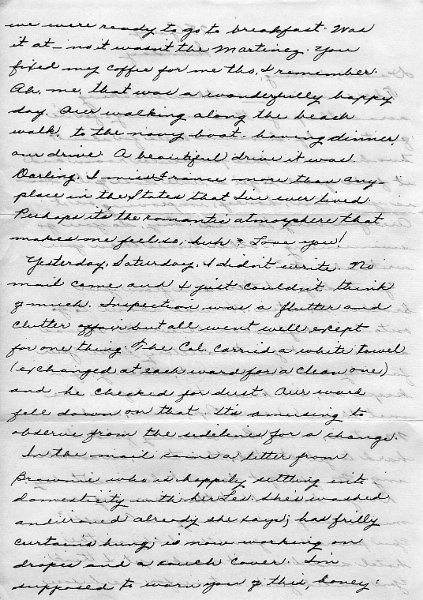 we were ready to go to breakfast. Was
it at - no it wasn't the Martinez. You
fixed my coffee for me tho, I remember.
Ah, me, that was a wonderfully happy
day. Our walking along the beach
walk, to the navy boat, having dinner,
our drive. A beautiful drive it was.
Darling, I miss France more than any-
place in the States that I've ever lived.
Perhaps its the romantic atmosphere that
makes me feel so, huh? Love you!
Yesterday, Saturday, I didn't write. No
mail came and I just couldn't think
of much. Inspection was a flutter and
clutter affair but all went well except
for one thing. The Col. carried a white towel
(exchanged at each ward for a clean one)
and he checked for dust. Our ward
fell down on that. It's amusing to
observe from the sidelines for a change.
In the mail came a letter from
Brownie who is happily settling into
domesticity with her Les. She's washed
and ironed already she says; has frilly
curtains hung; is now working on
drapes and a couch cover. I'm
supposed to warn you of this, honey.